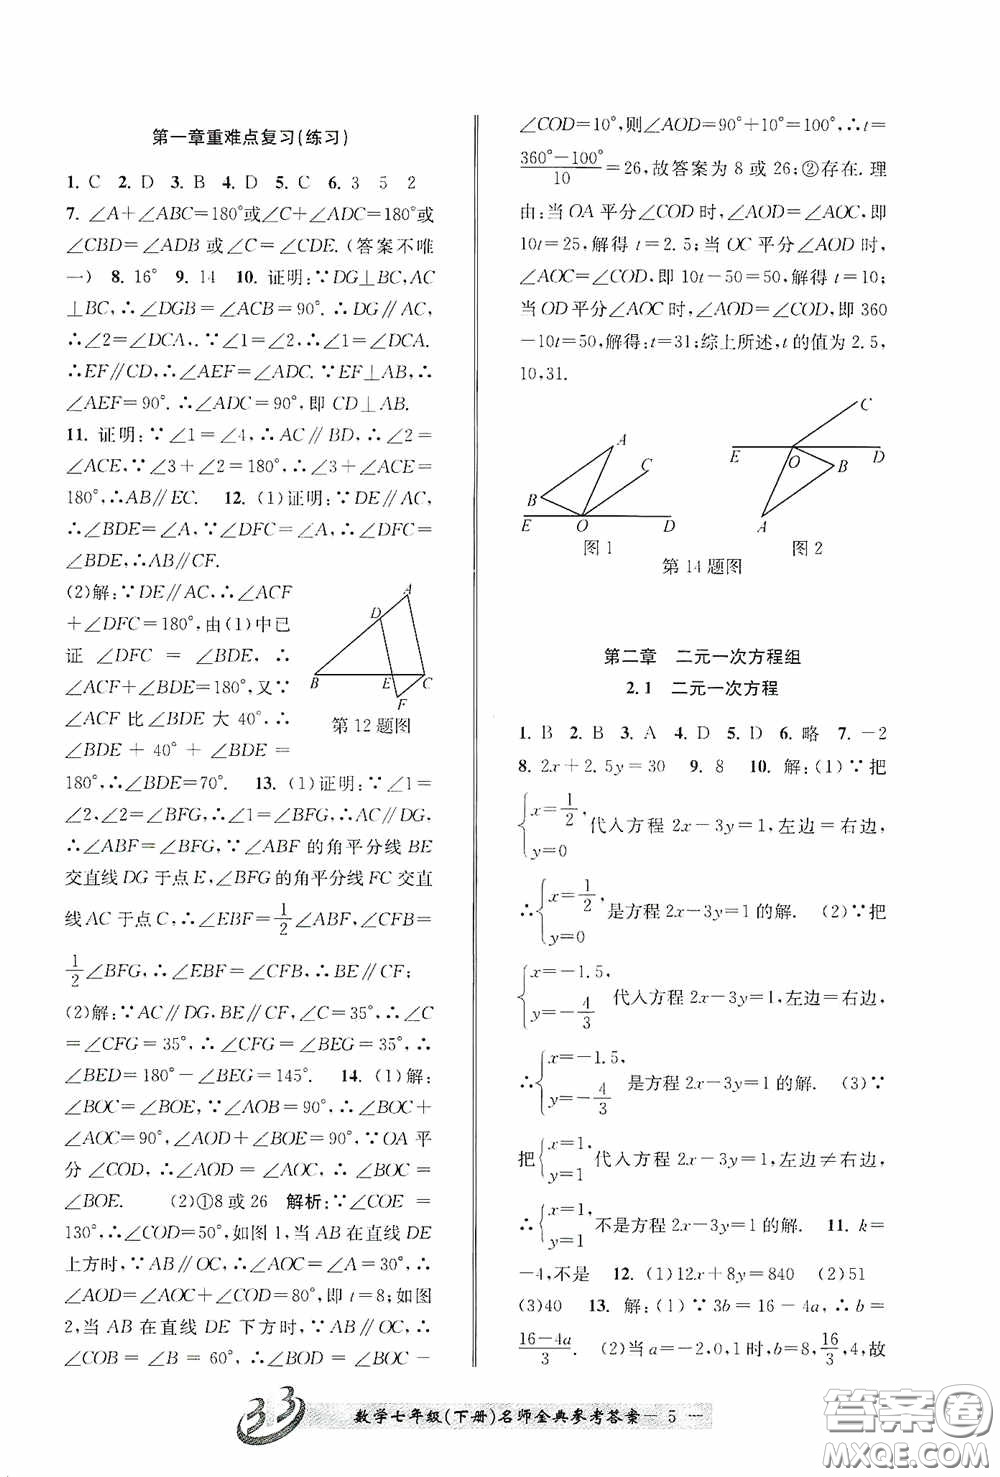 第一章重难点复习(练习)
1. C 2. D 3. B 4. D 5. C 6. 3 5 2
7. ∠A+∠ABC=180°或∠C+∠ADC=180°或
∠CBD=∠ADB 或∠C=∠CDE. (答案不唯
一) 8. 16° 9. 14 10. 证明:∵DG⊥BC,AC
⊥BC,∴∠DGB=∠ACB=90°.∴DG∥AC,
∴∠2=∠DCA,.∵∠1=∠2,∴∠1=∠DCA.
∴EF∥CD,∴∠AEF=∠ADC.∵EF⊥AB,∴
∠AEF=90°.∴∠ADC=90°,即 CD⊥AB.
11. 证明:∵∠1=∠4,∴AC∥BD,∴∠2=
∠ACE,∵∠3+∠2=180°,∴∠3+∠ACE=
180°,∴AB∥EC. 12. (1)证明:∵DE∥AC,
∴∠BDE=∠A,∵∠DFC=∠A,∴∠DFC=
∠BDE,∴AB∥CF.
(2)解:∵DE∥AC,∴∠ACF
+∠DFC=180°,由(1)中已
证∠DFC=∠BDE,∴
∠ACF+∠BDE=180°,又∵
∠ACF 比∠BDE 大 40°,∴
∠BDE+40°+∠BDE=
180°,∴∠BDE=70°. 13. (1)证明:∵∠1=
∠2,∠2=∠BFG,∴∠1=∠BFG,∴AC∥DG,
∴∠ABF=∠BFG,∵∠ABF 的角平分线 BE
交直线 DG 于点 E,∠BFG 的角平分线 FC 交直
线 AC 于点 C,∴∠EBF=1/2∠ABF,∠CFB=
1/2∠BFG,∴∠EBF=∠CFB,∴BE∥CF;
(2)解:∵AC∥DG,BE∥CF,∠C=35°,∴∠C
=∠CFG=35°,∴∠CFG=∠BEG=35°,∴
∠BED=180°-∠BEG=145°. 14. (1)解:
∠BOC=∠BOE,∵∠AOB=90°,∴∠BOC+
∠AOC=90°,∠AOD+∠BOE=90°,∵OA 平
分∠COD,∴∠AOD=∠AOC,∴∠BOC=
∠BOE. (2)①8 或 26 解析:∵∠COE=
130°,∴∠COD=50°,如图 1,当 AB 在直线 DE
上方时,∵AB∥OC,∴∠AOC=∠A=30°,∴
∠AOD=∠AOC+∠COD=80°,即 t=8;如图
2,当 AB 在直线 DE 下方时,∵AB∥OC,∴
∠COB=∠B=60°,∴∠BOD=∠BOC-
A
D
B
E
C
F
第 12 题图
∠COD=10°,则∠AOD=90°+10°=100°,∴t=
360°-100°/10=26,故答案为 8 或 26;②存在.理
由:当 OA 平分∠COD 时,∠AOD=∠AOC,即
10t=25,解得 t=2.5;当 OC 平分∠AOD 时,
∠AOC=∠COD,即 10t-50=50,解得 t=10;
当 OD 平分∠AOC 时,∠AOD=∠COD,即 360
-10t=50,解得:t=31;综上所述,t 的值为 2.5,
10,31.
A
C
B
E O D
图 1
C
E O B D
A
图 2
第 14 题图
第二章 二元一次方程组
2.1 二元一次方程
1. B 2. B 3. A 4. D 5. D 6. 略 7. -2
8. 2x+2.5y=30 9. 8 10. 解:(1)∵把
{x=1/2, y=0 代入方程 2x-3y=1,左边=右边,
∴{x=1/2, y=0 是方程 2x-3y=1 的解. (2)∵把
{x=-1.5, y=-4/3 代入方程 2x-3y=1,左边=右边,
∴{x=-1.5, y=-4/3 是方程 2x-3y=1 的解. (3)∵
把{x=1, y=1 代入方程 2x-3y=1,左边≠右边,
∴{x=1, y=1 不是方程 2x-3y=1 的解. 11. k=
-4,不是 12. (1)12x+8y=840 (2)51
(3)40 13. 解:(1)∵3b=16-4a,∴b=
16-4a/3. (2)当 a=-2,0,1 时,b=8,16/3,4,故
33 数学七年级(下册)名师金典参考答案— 5 —
答案圈
MXQE.COM